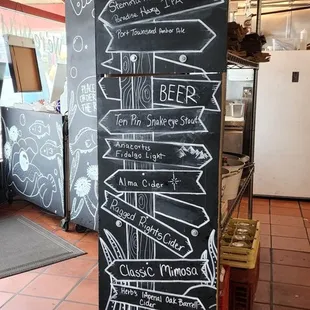 Paradise Hwy IPA
Port Townsend Amber Ale
BEER
Ten Pin Snake eye Stout
Anacortes
Fidalgo Light
Alma Cider
Ragged Rights Cider
Classic Mimosa
Herb's Imperial Oak Barrel
Cider